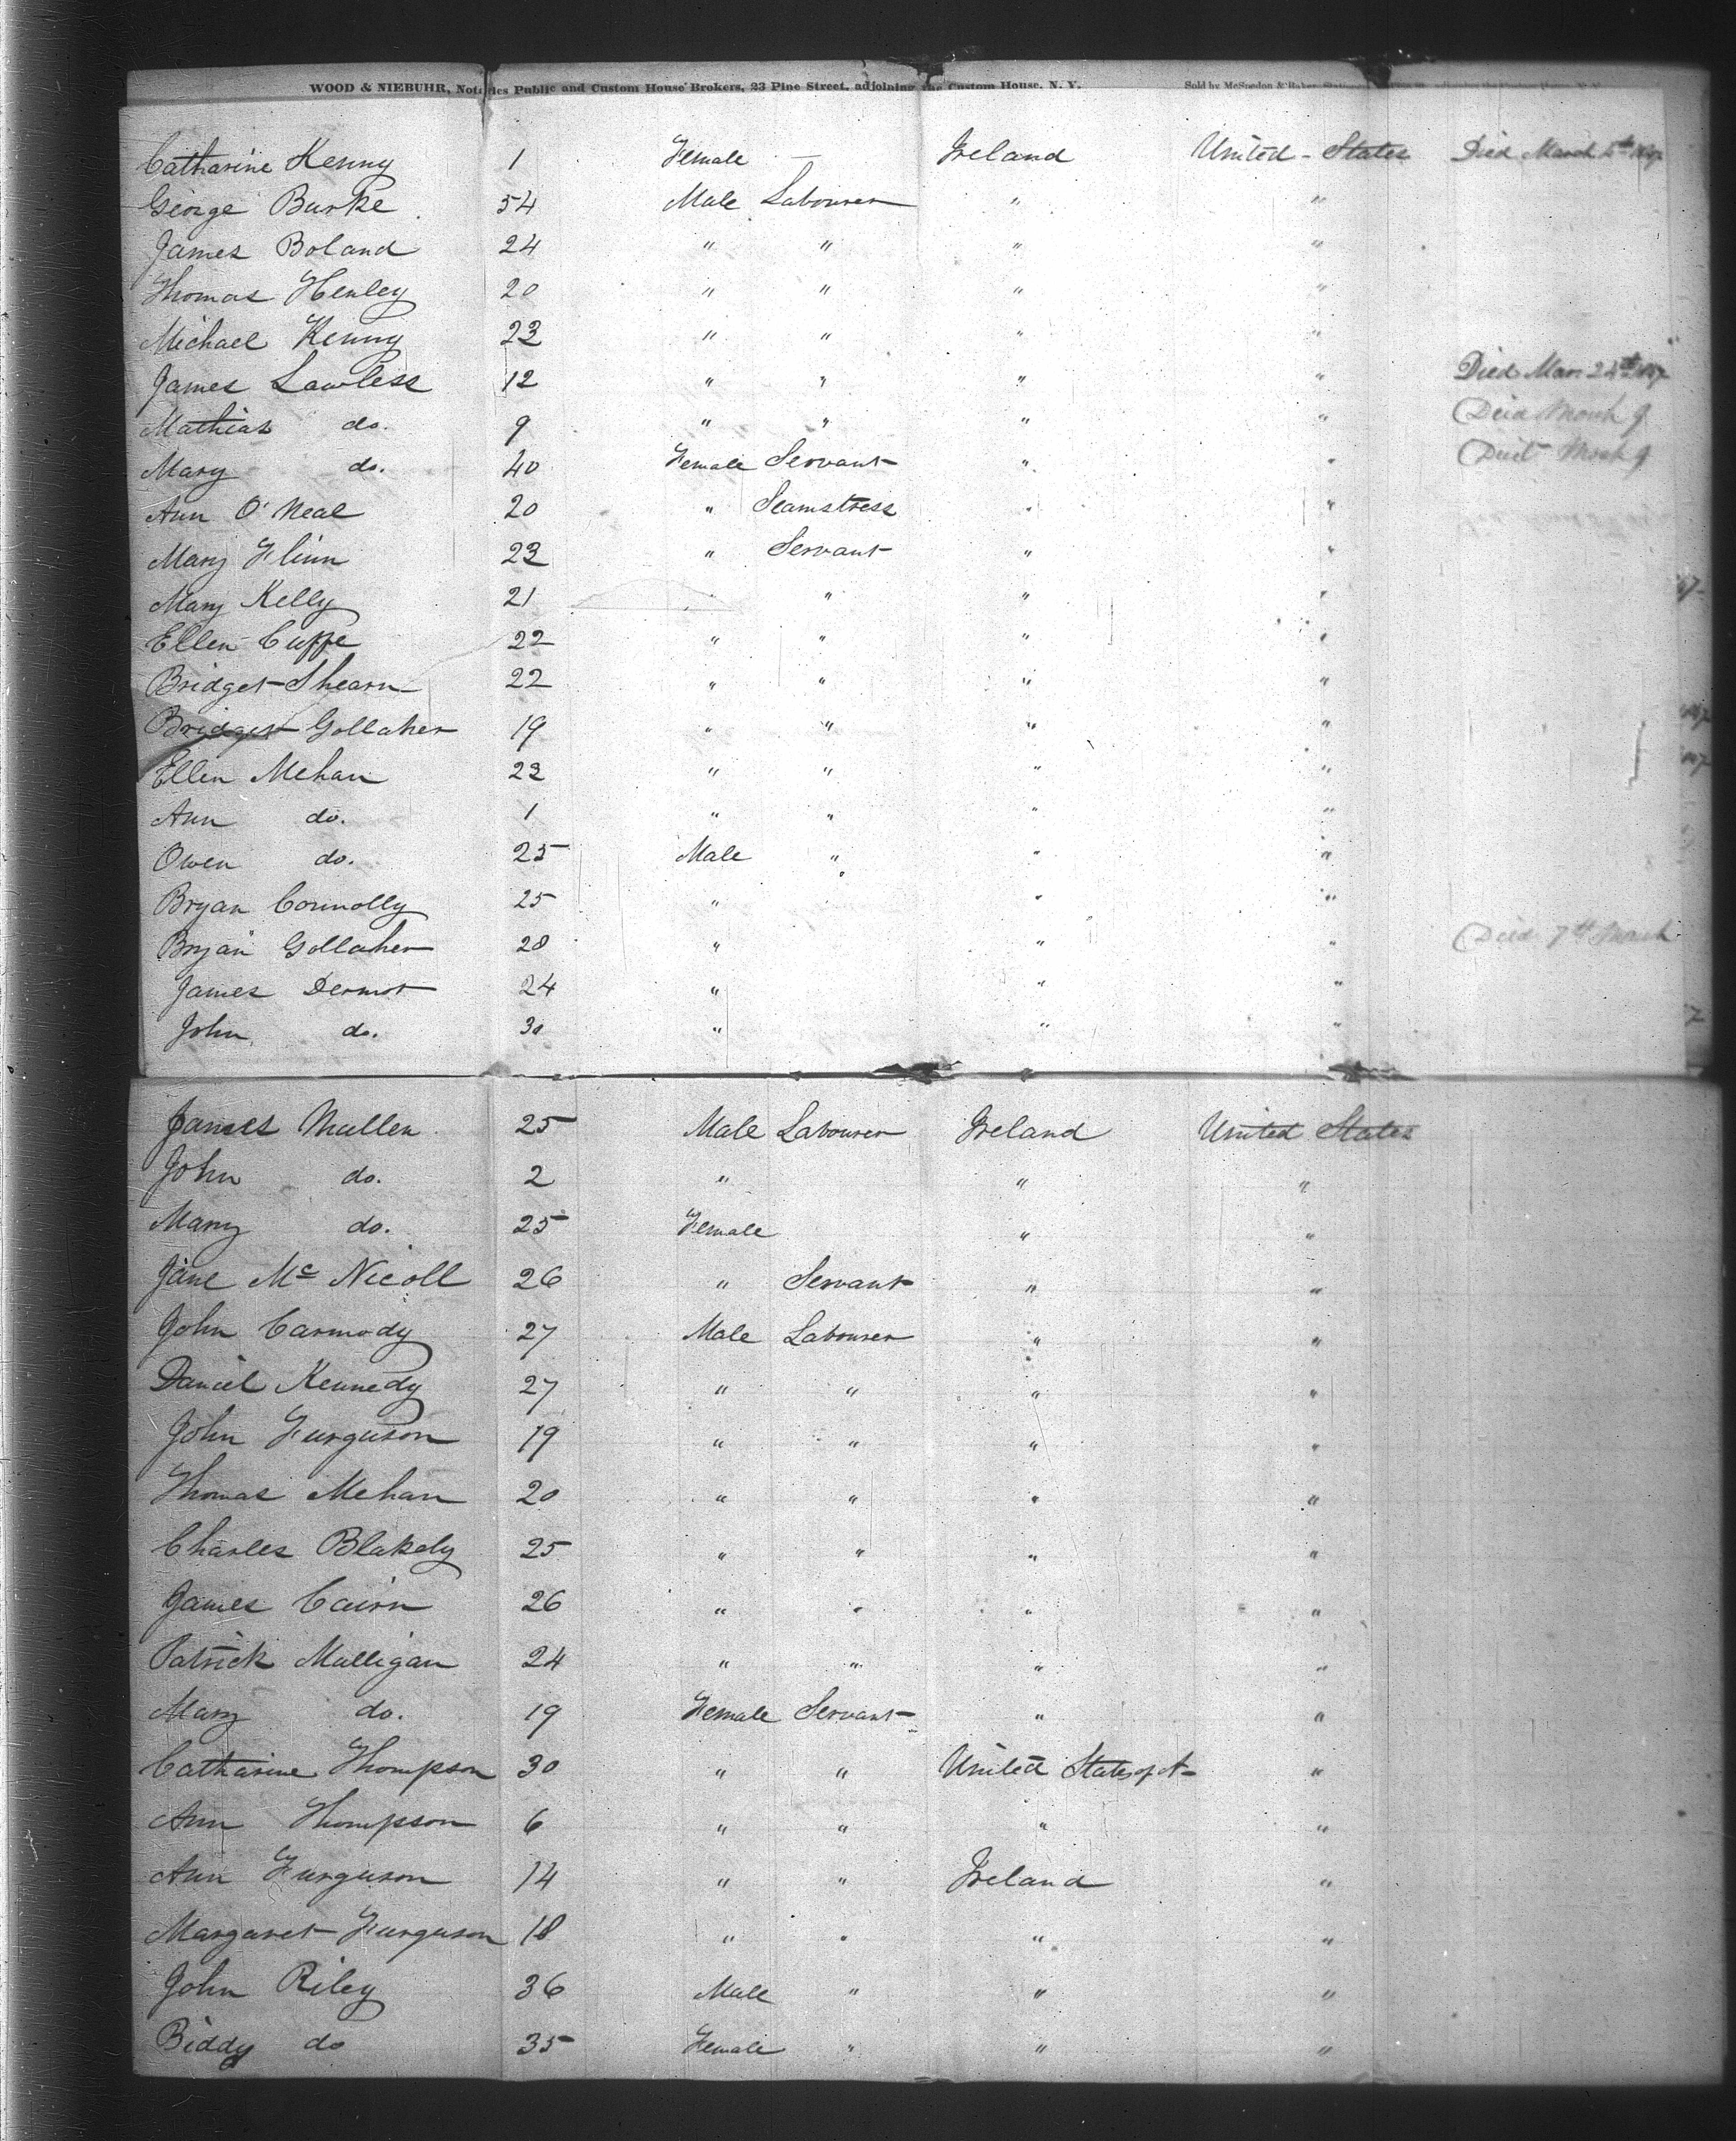 WOOD & NIEBUHR, Notaries Public and Custom House Brokers, 23 Pine Street, adjoining the Custom House, N. Y. Sold by McSpedon & Baker,
Catharine Kenny 1 Female — Ireland United States Died March
George Burke 54 Male Labourer " "
James Boland 24 " " " "
Thomas Henley 20 " " " "
Michael Kenny 23 " " " "
James Lawless 12 " " " " Died Mar. 24th
Mathias do. 9 " " " " Died March 9
Mary do. 40 Female Servant " " Died March 9
Ann O'Neal 20 " Seamstress " "
Mary Flinn 23 " Servant " "
Mary Kelly 21 " " " "
Ellen Cuffe 22 " " " "
Bridget Shearn 22 " " " "
Bridget Gollaher 19 " " " "
Ellen Mehan 23 " " " "
Ann do. 1 " " " "
Owen do. 25 Male " " "
Bryan Connolly 25 " " "
Bryan Gollaher 28 " " " Died 7th March
James Dermot 24 " " "
John do. 30 " " "
James Mullen 25 Male Labourer Ireland United States
John do. 2 " " "
Mary do. 25 Female " "
Jane Mc Nicoll 26 " Servant " "
John Carmody 27 Male Labourer " "
Daniel Kennedy 27 " " " "
John Furguson 19 " " " "
Thomas Mehan 20 " " " "
Charles Blakely 25 " " " "
James Cairn 26 " " " "
Patrick Mulligan 24 " " " "
Mary do. 19 Female Servant " "
Catharine Thompson 30 " " United States of A "
Ann Thompson 6 " " " "
Ann Furguson 14 " " Ireland "
Margaret Furguson 18 " " " "
John Riley 36 Male " " "
Biddy do 35 Female " " "